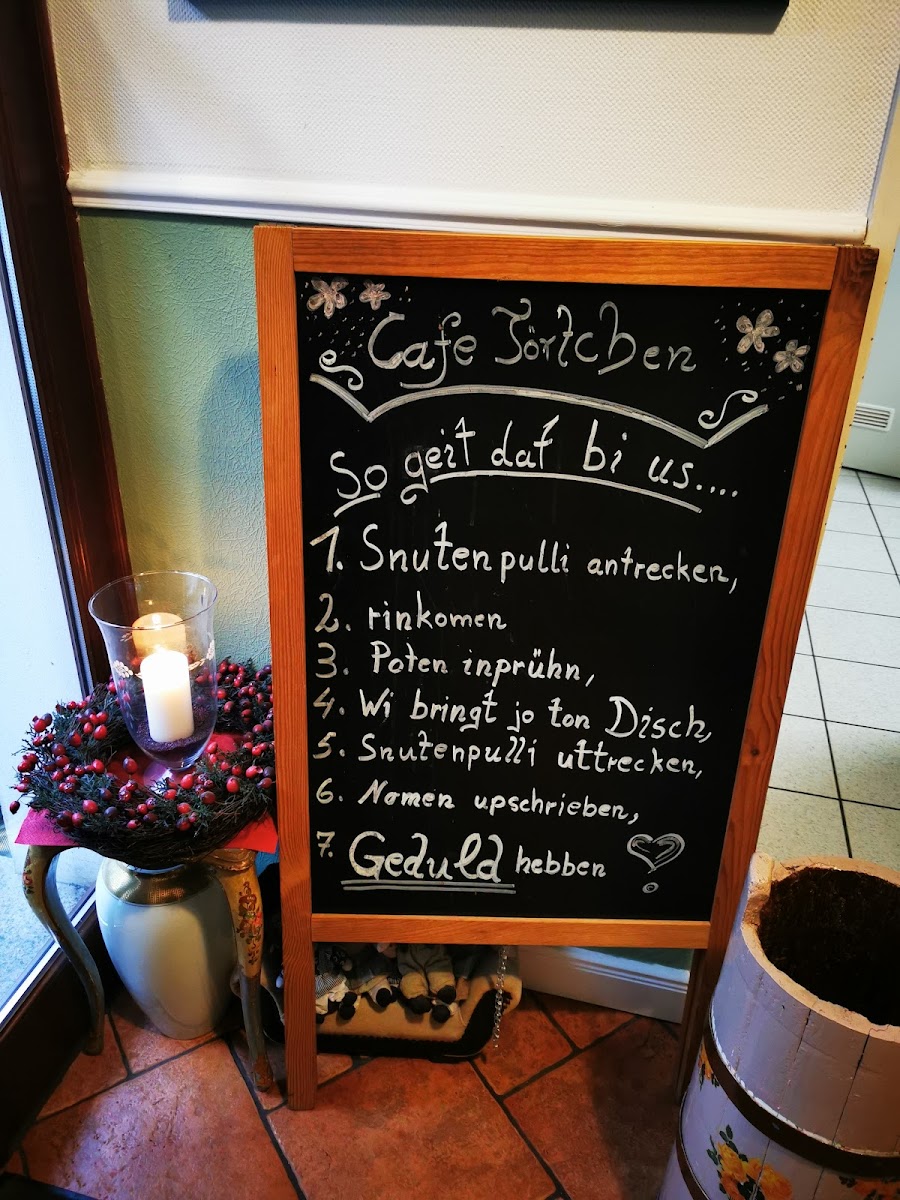 Cafe Törtchen
So geit dat bi us....
1. Snutenpulli antrecken,
2. rinkomen
3. Poten inprühn,
4. Wi bringt jo ton Disch,
5. Snutenpulli uttrecken,
6. Nomen upschrieben,
7. Geduld hebben